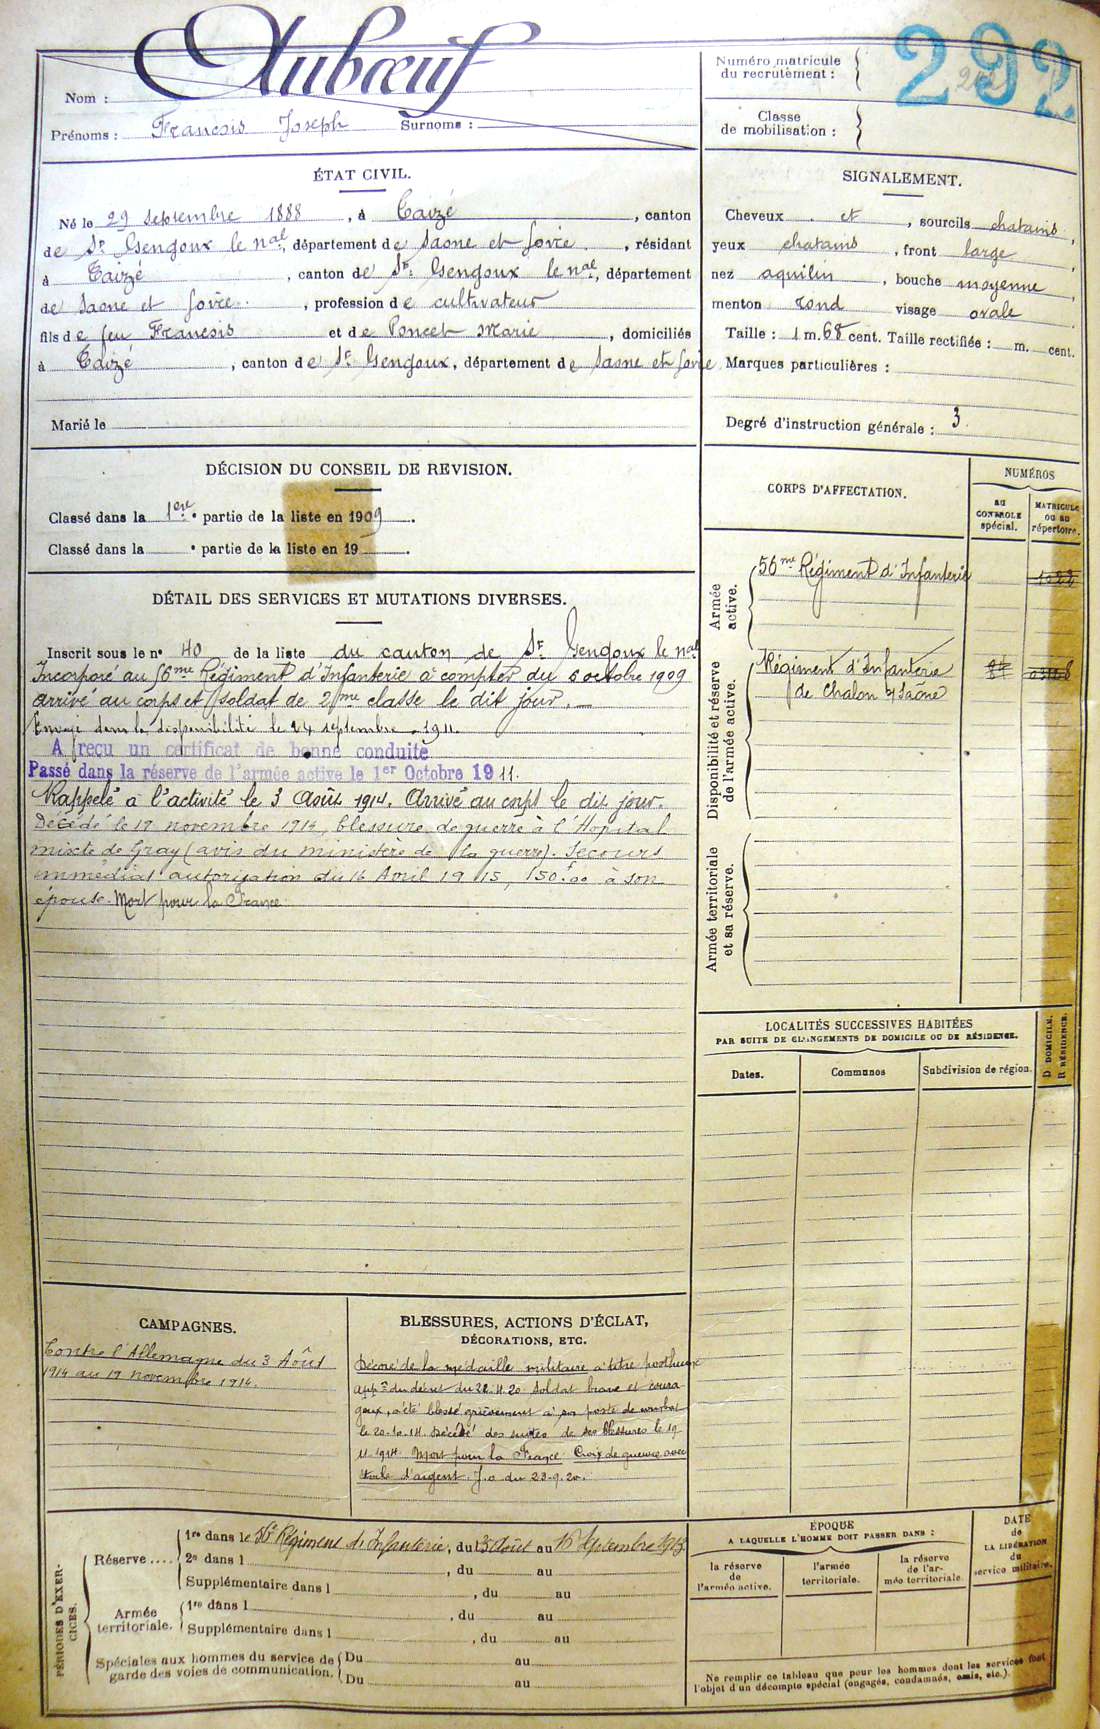 Nom :
Aubœuf
Prénoms : François Joseph Surnoms :
Numéro matricule
du recrutement :
292
Classe
de mobilisation :
ÉTAT CIVIL.
Né le 29 septembre 1888, à Taizé, canton
de St Gengoux le nal, département de Saone et Loire, résidant
à Taizé, canton de St Gengoux le nal, département
de Saone et Loire, profession de cultivateur
fils de feu François et de Poncet Marie, domiciliés
à Taizé, canton de St Gengoux, département de Saone et Loire
Marié le
SIGNALEMENT.
Cheveux et, sourcils chatains,
yeux chatains, front large,
nez aquilin, bouche moyenne,
menton rond visage ovale
Taille : 1 m. 68 cent. Taille rectifiée : m. cent.
Marques particulières :
Degré d'instruction générale : 3.
DÉCISION DU CONSEIL DE REVISION.
Classé dans la 1ere partie de la liste en 1909.
Classé dans la e partie de la liste en 19 .
DÉTAIL DES SERVICES ET MUTATIONS DIVERSES.
Inscrit sous le no 40 de la liste du canton de St Gengoux le nal
Incorporé au 56me Régiment d'Infanterie à compter du 5 octobre 1909
arrivé au corps et soldat de 2me classe le dit jour.
Envoyé dans la disponibilité le 24 septembre 1911.
A reçu un certificat de bonne conduite
Passé dans la réserve de l'armée active le 1er Octobre 1911.
Rappelé à l'activité le 3 Août 1914. Arrivé au corps le dit jour.
Décédé le 19 novembre 1914, blessure de guerre à l'Hopital
mixte de Gray (avis du ministère de la guerre). Secours
immédiat autorisation du 16 Avril 1915, 150f00 à son
épouse. Mort pour la France
CORPS D'AFFECTATION.
NUMÉROS
AU CONTROLE spécial.
MATRICULE OU AU répertoire.
Armée
active.
56me Régiment d'Infanterie
Disponibilité et réserve
de l'armée active.
Régiment d'Infanterie
de Chalon s/Saône
Armée territoriale
et sa réserve.
LOCALITÉS SUCCESSIVES HABITÉES
PAR SUITE DE CHANGEMENTS DE DOMICILE OU DE RÉSIDENCE.
Dates.
Communes
Subdivision de région.
D DOMICILE.
R RÉSIDENCE.
CAMPAGNES.
Contre l'Allemagne du 3 Août
1914 au 19 novembre 1914.
BLESSURES, ACTIONS D'ÉCLAT,
DÉCORATIONS, ETC.
Décoré de la médaille militaire à titre posthume
appon du décret du 22.4.20 Soldat brave et coura
geux, a été blessé grièvement à son poste de combat
le 20-10-14 Décédé des suites de ses blessures le 19
11.1914. Mort pour la France. Croix de guerre avec
étoile d'argent. J.O du 23-9-20.
PÉRIODES D'EXERCICES.
Réserve....
1re dans le 56e Régiment d'Infanterie, du 3 Août au 16 Septembre 1913
2e dans l , du au
Supplémentaire dans l , du au
Armée
territoriale.
1re dans l , du au
Supplémentaire dans l , du au
Spéciales aux hommes du service de
garde des voies de communication.
Du au
Du au
ÉPOQUE
A LAQUELLE L'HOMME DOIT PASSER DANS :
la réserve
de
l'armée active.
l'armée
territoriale.
la réserve
de l'ar-
mée territoriale.
DATE
de
LA LIBÉRATION
du
service militaire.
Ne remplir ce tableau que pour les hommes dont les services font
l'objet d'un décompte spécial (engagés, condamnés, omis, etc.).